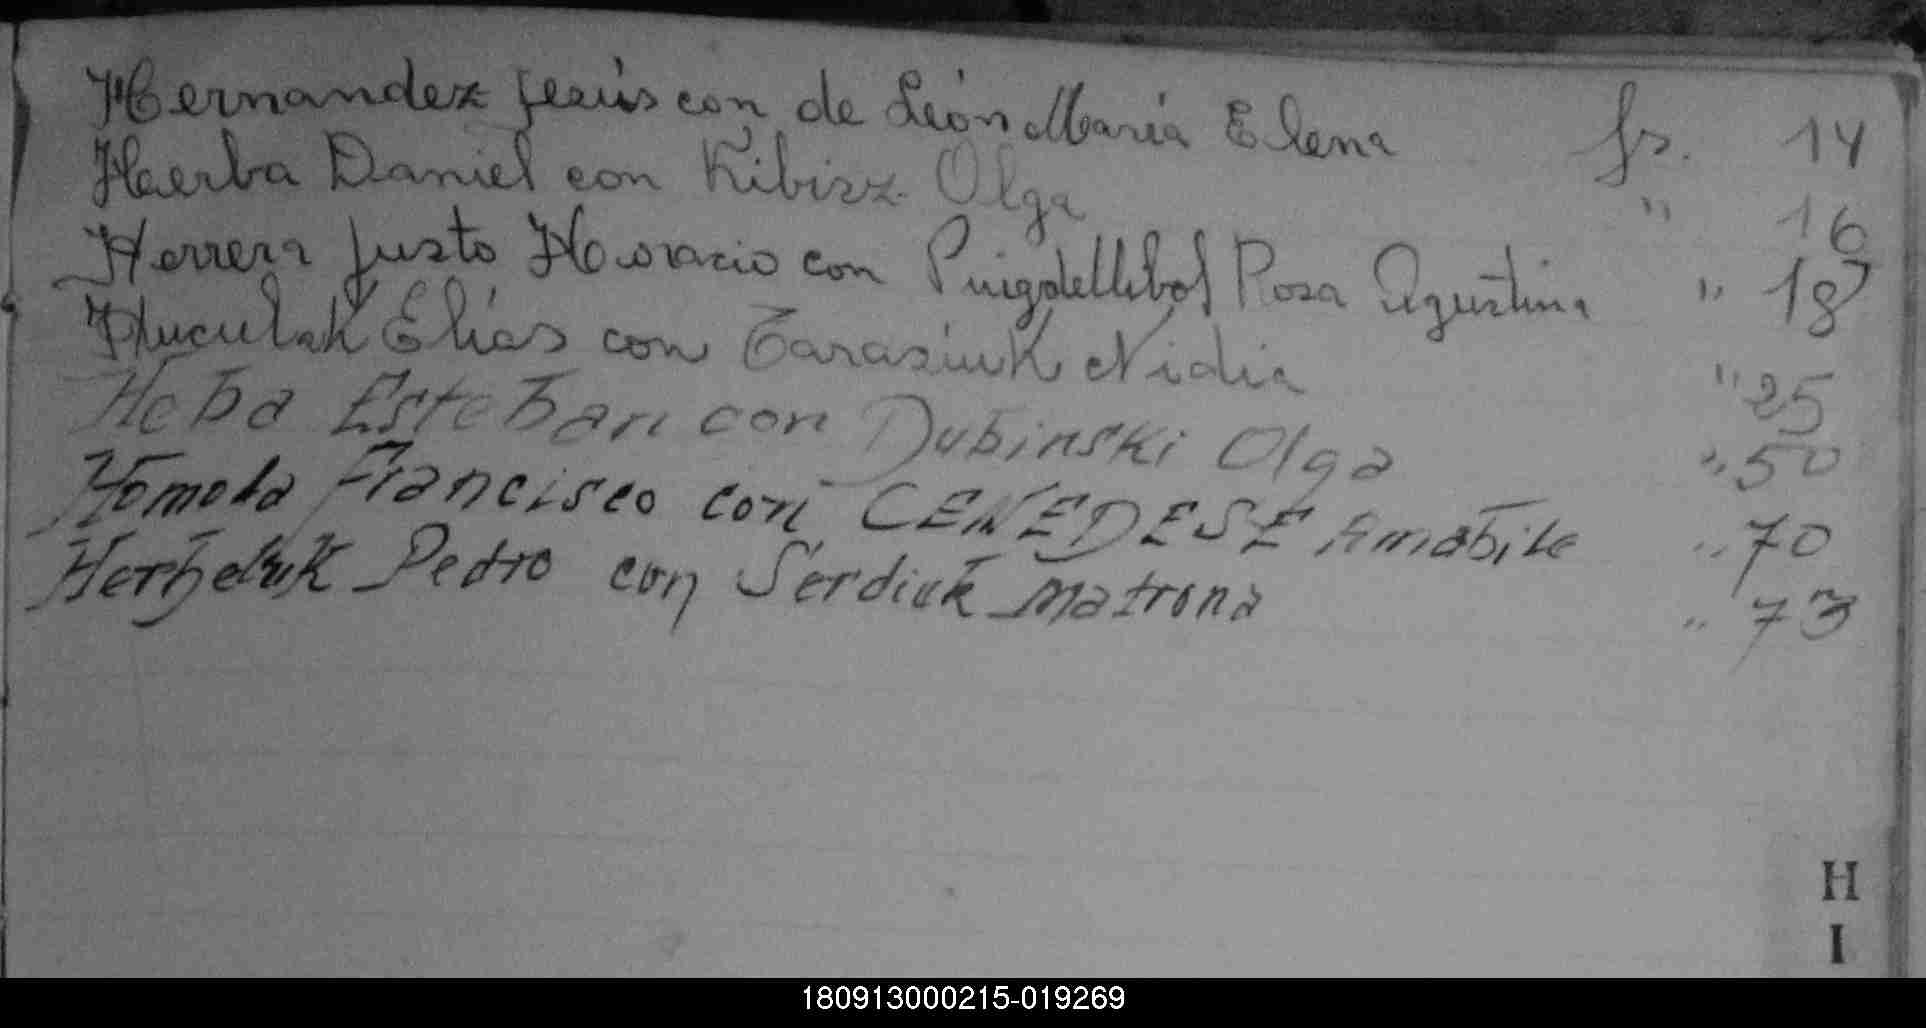 Hernandez Jesús con de León María Elena fs. 14
Haerba Daniel con Kibisz Olga " 16
Herrera Justo Horacio con Puigdellibol Rosa Agustina " 18
Huculak Elías con Tarasiuk Nidia " 25
Heba Esteban con Dubinski Olga " 50
Homola Francisco con CENEDESE Amabile " 70
Pedro con Serdiuk Matrona " 73
H
I
180913000215-019269